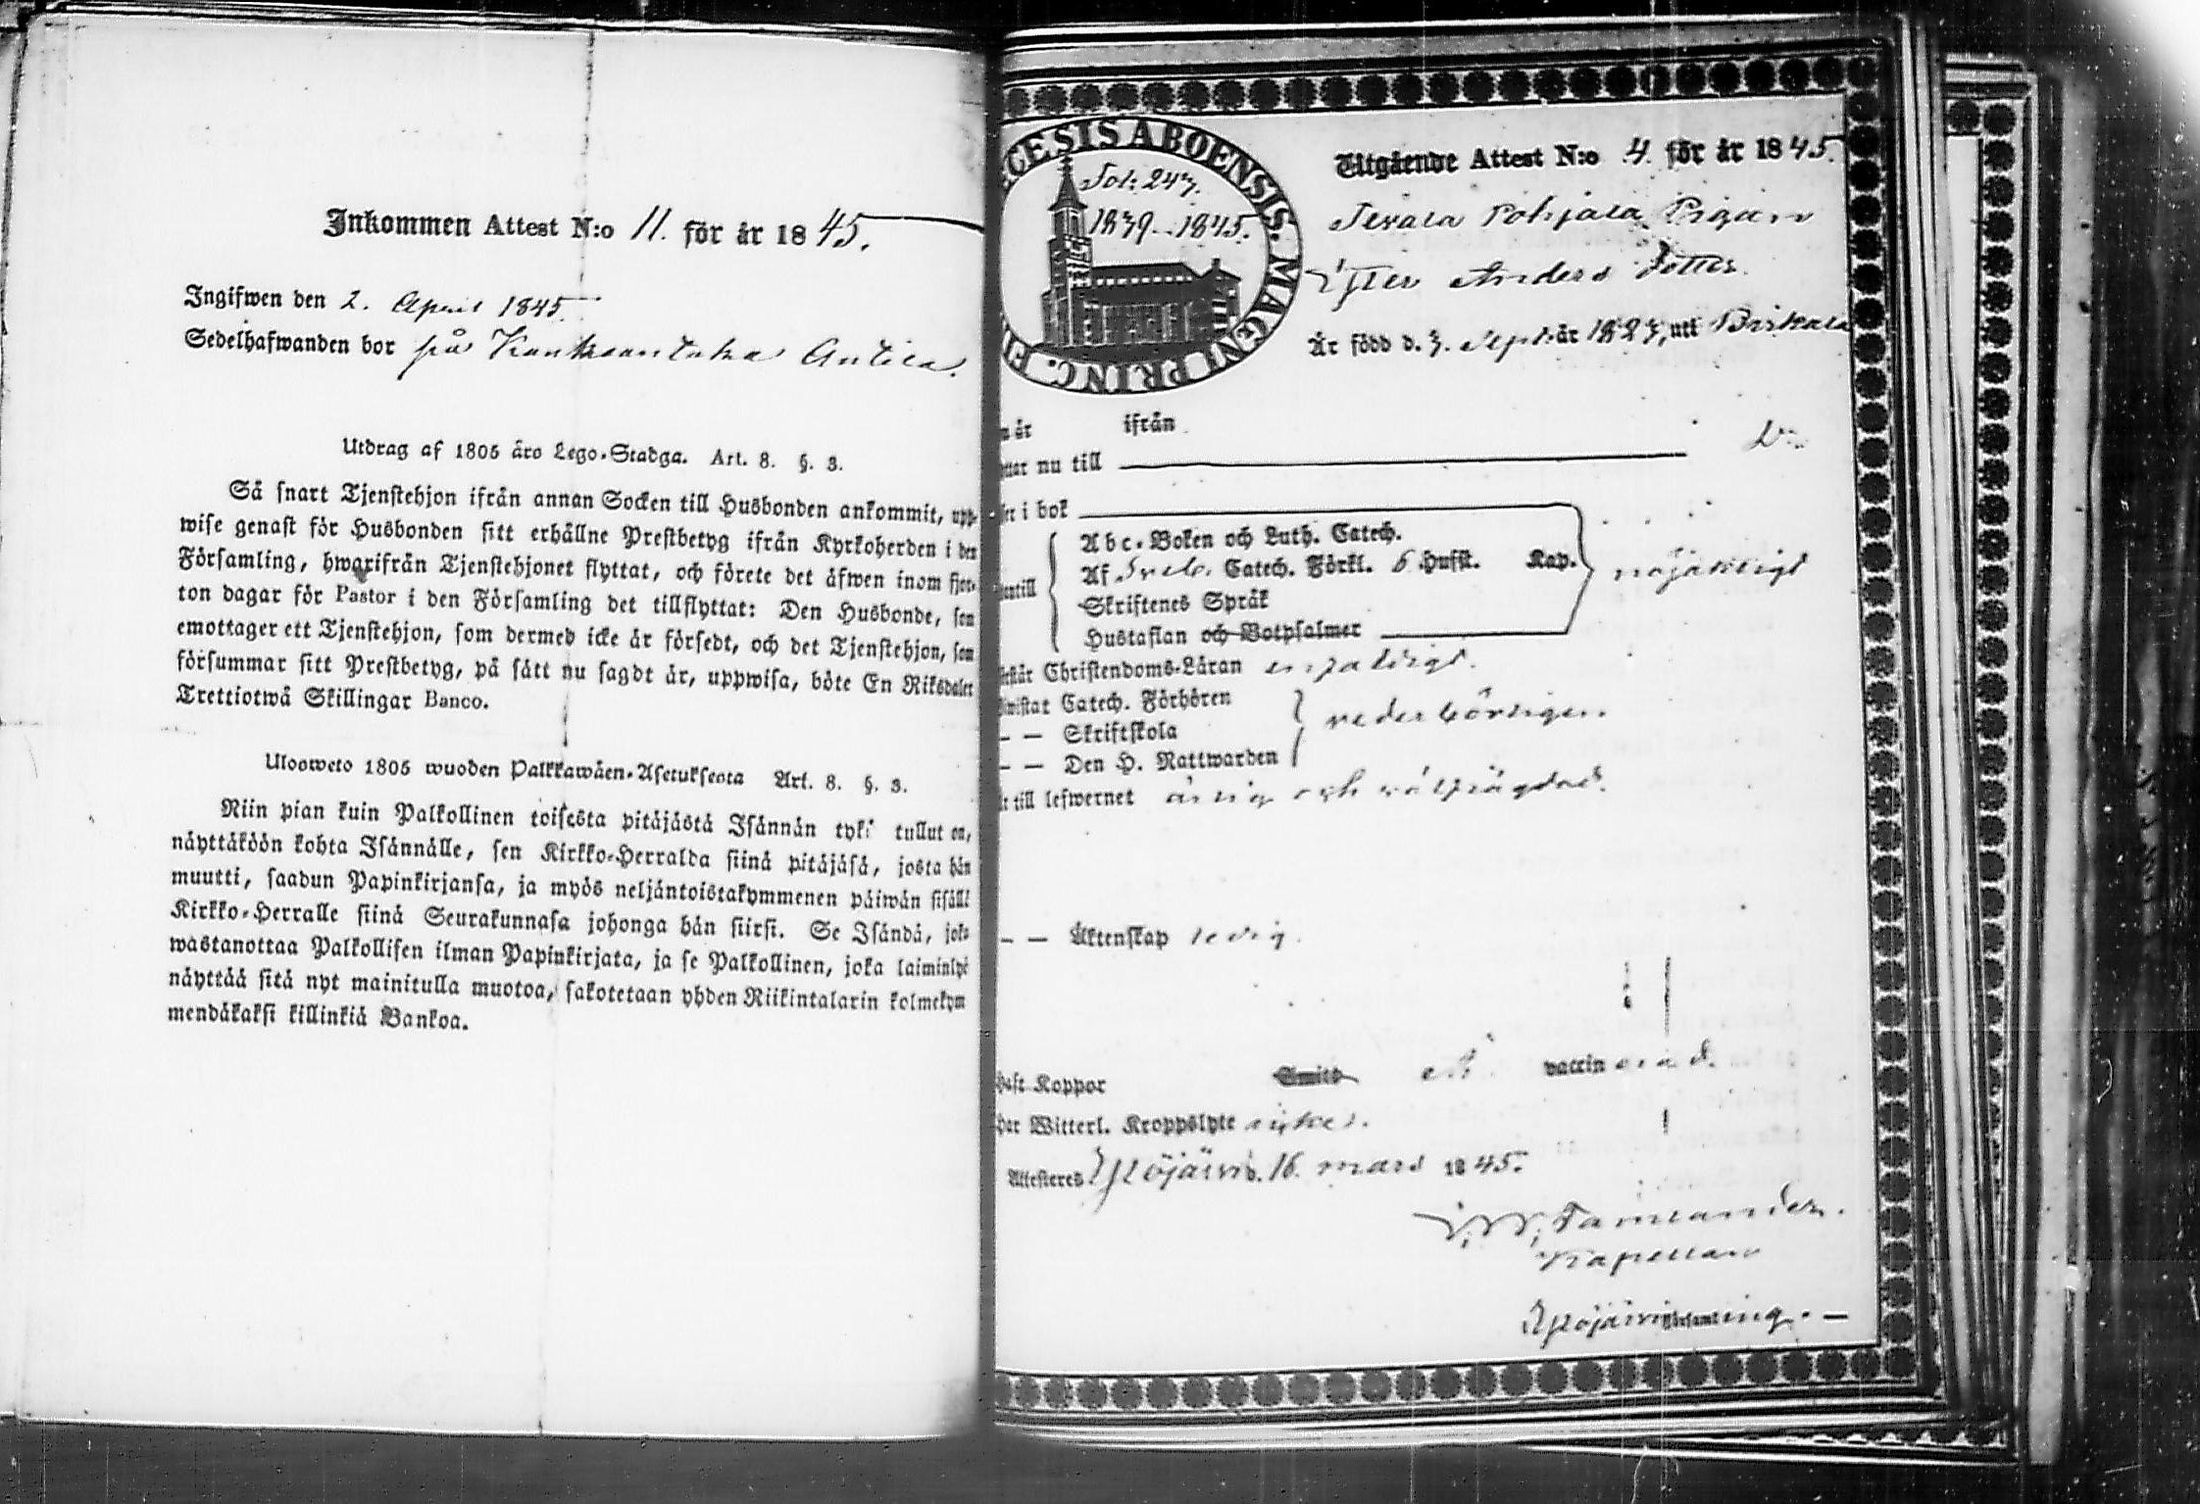 Inkommen Attest N:o 11. för år 1845.
Ingifwen den 2. April 1845.
Sedelhafwanden bor på
Utdrag af 1805 års Lego-Stadga. Art. 8. §. 3.
Så snart Tjenstehjon ifrån annan Socken till Husbonden ankommit, upp-
wise genast för Husbonden sitt erhållne Prestbetyg ifrån Kyrkoherden i den
Församling, hwarifrån Tjenstehjonet flyttat, och förete det äfwen inom fjor-
ton dagar för Pastor i den Församling det tillflyttat: Den Husbonde, som
emottager ett Tjenstehjon, som dermed icke är försedt, och det Tjenstehjon, som
försummar sitt Prestbetyg, på sätt nu sagdt är, uppwisa, böte En Riksdaler
Trettiotwå Skillingar Banco.
Ulosweto 1805 wuoden Palkkawäen-Asetuksesta Art. 8. §. 3.
Niin pian kuin Palkollinen toisesta pitäjästä Isännän tykö tullut on,
näyttäköön kohta Isännälle, sen Kirkko-Herralda siinä pitäjäsä, josta hän
muutti, saadun Papinkirjansa, ja myös neljäntoistakymmenen päiwän sisällä
Kirkko-Herralle siinä Seurakunnasa johonga hän siirsi. Se Isändä, joka
wastanottaa Palkollisen ilman Papinkirjata, ja se Palkollinen, joka laiminlyö
näyttää sitä nyt mainitulla muotoa, sakotetaan yhden Riikintalarin kolmekym
mendäkaksi killinkiä Bankoa.
ECESIS ABOENSIS. MAGNI PRINC. FI
Fol: 247.
1839-1845.
Utgående Attest N:o 4. för år 1845.
Pohjala Pigan
Anders dotter.
Är född d. 3. Sept. år 1827, uti Birkala
n år ifrån
ttar nu till
ser i bok
Abc-Boken och Luth. Catech.
Af Sveb. Catech. Förkl. 6 Hufst. Kap.
Skriftenes Språk
Hustaflan och Botpsalmer
nöjaktigt
entill
rstår Christendoms-Läran enfaldigt.
wistat Catech. Förhören
— — Skriftskola
— — Den H. Nattwarden
vederbörligen.
r till lefwernet ärlig och välfrägdad.
— — Äktenskap ledig.
haft Koppor Smitt vaccinerad.
har Witterl. Kroppslyte icke.
Attesteres Ylöjärvi d. 16. mars 1845.
Kapellan
Ylöjärvi församling. —